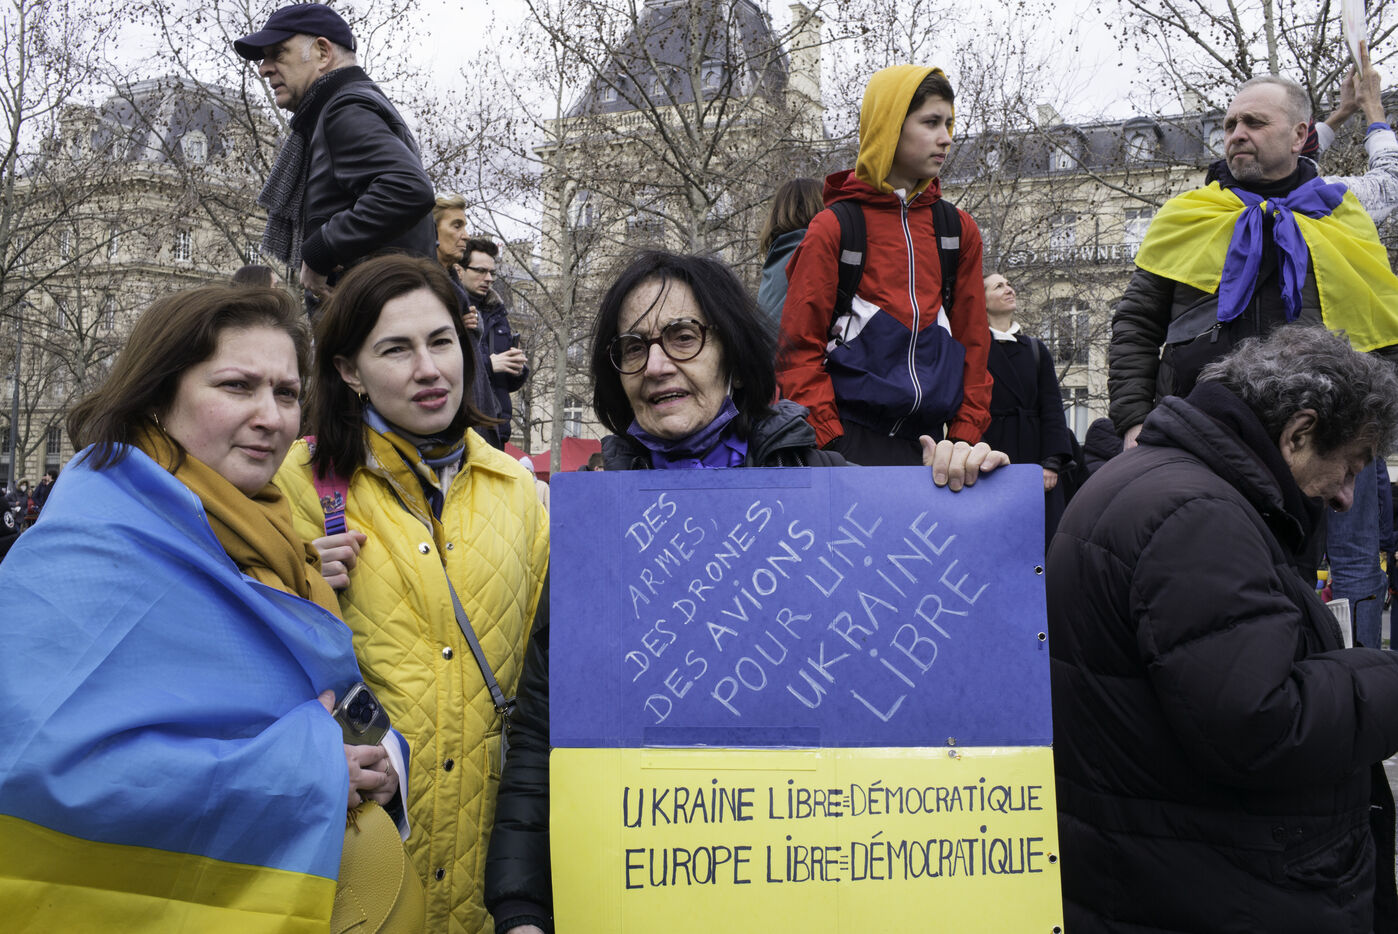 DES
ARMES,
DES DRONES,
DES AVIONS
POUR UNE
UKRAINE
LIBRE
UKRAINE LIBRE=DÉMOCRATIQUE
EUROPE LIBRE=DÉMOCRATIQUE